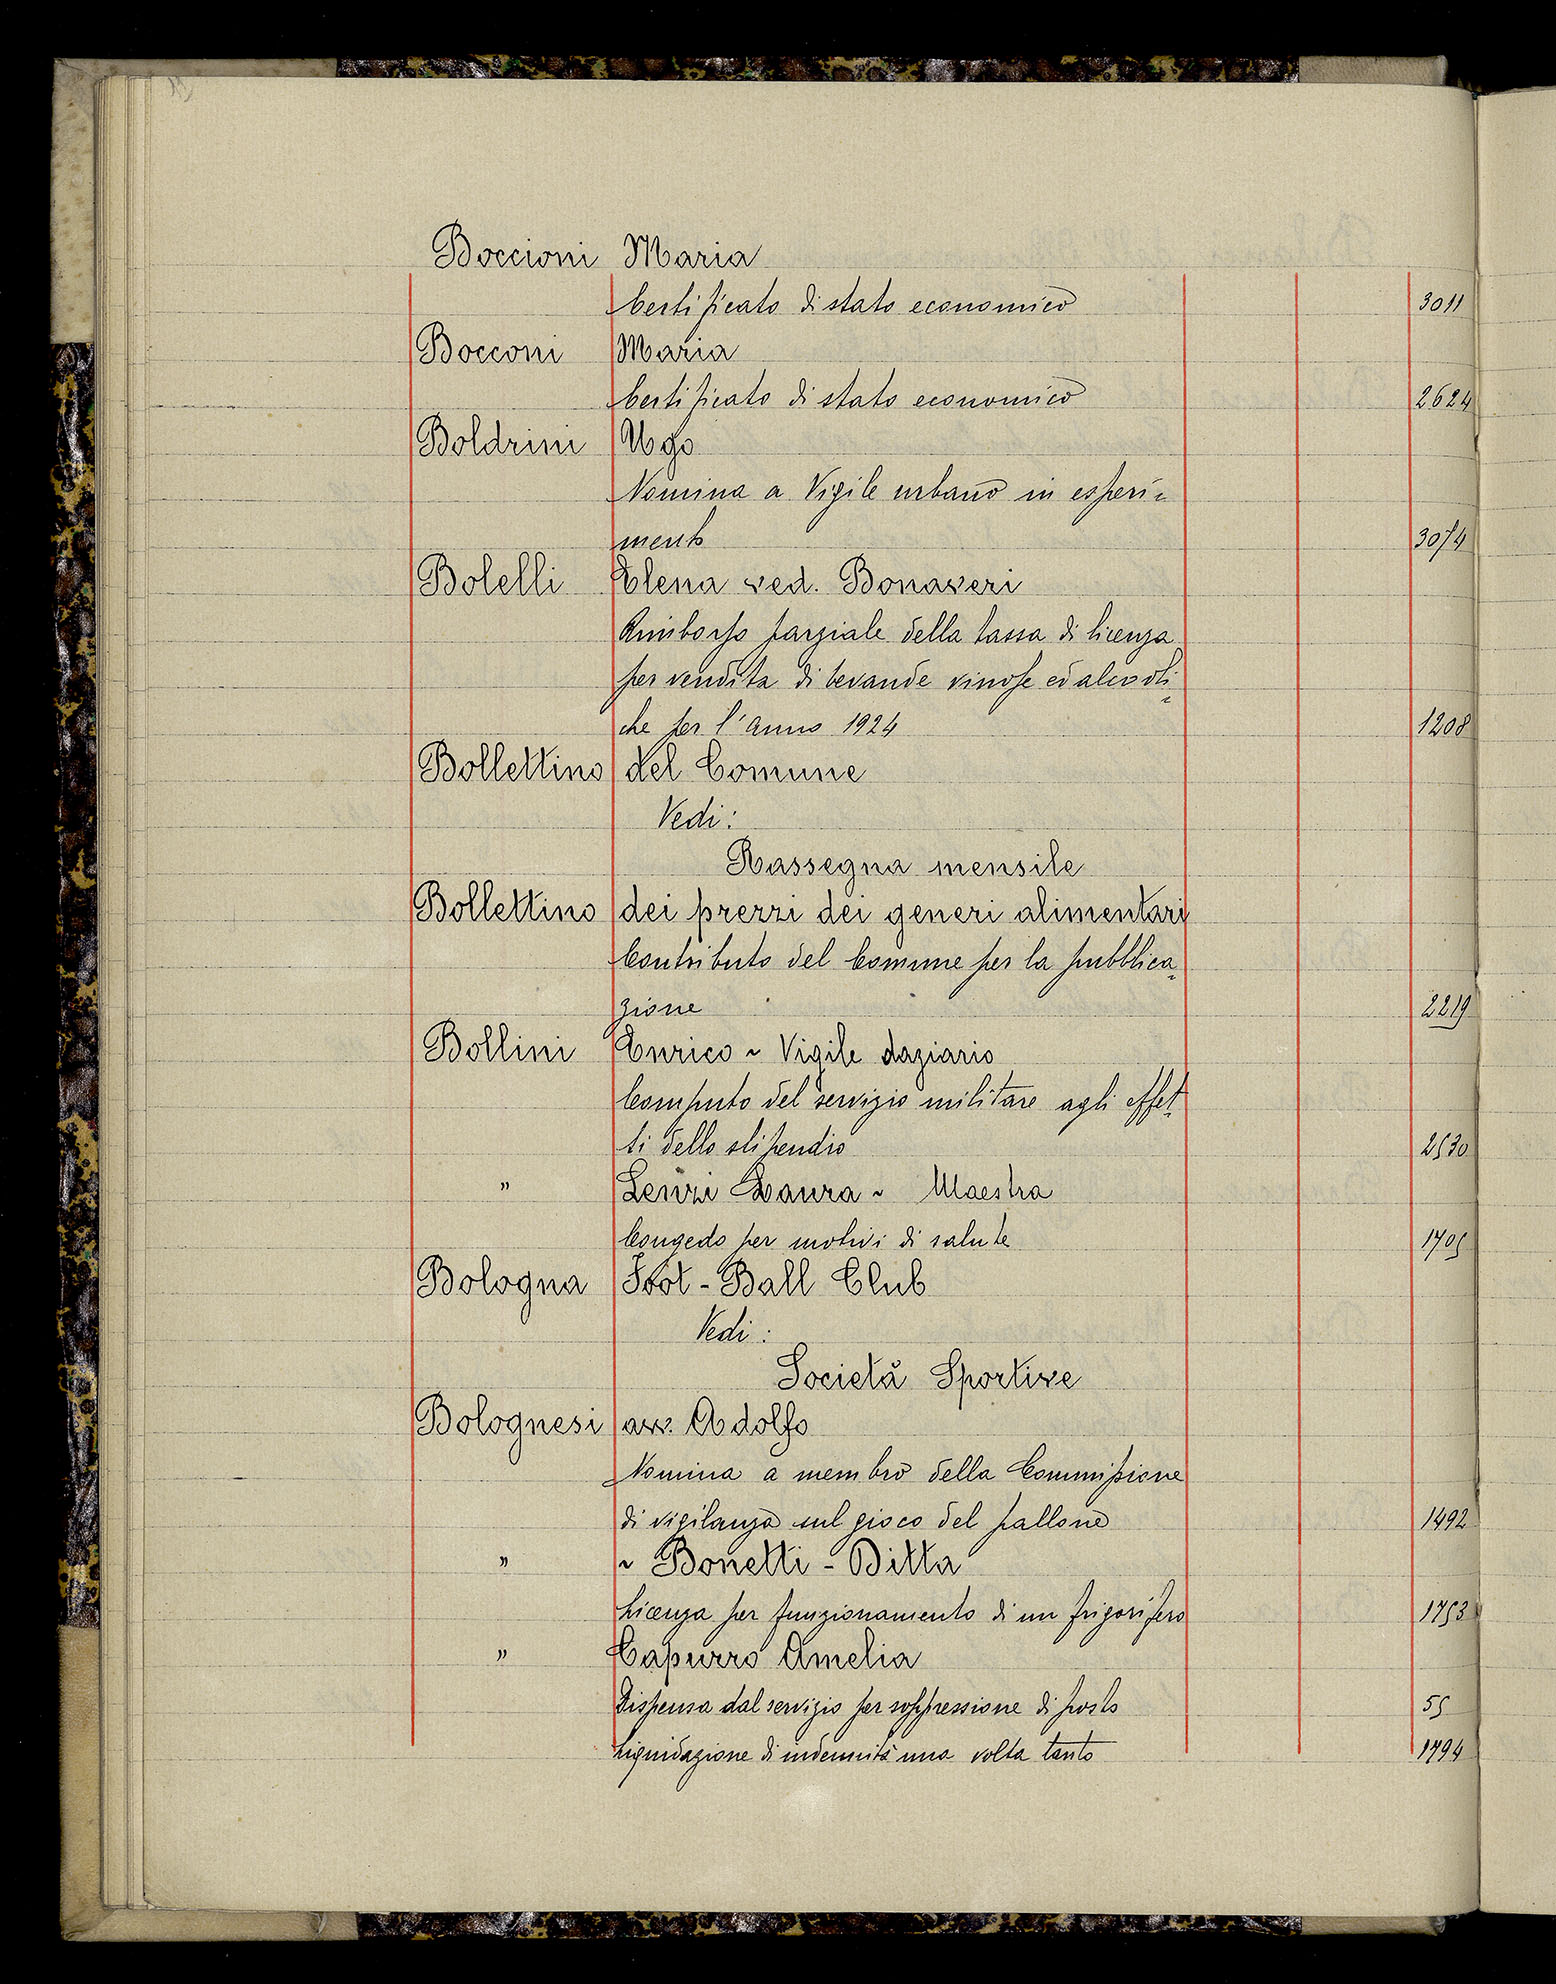 Boccioni Maria
Certificato di stato economico 3011
Bocconi Maria
Certificato di stato economico 2624
Boldrini Ugo
Nomina a Vigile urbano in esperi=
mento 3074
Bolelli Elena ved. Bonaveri
Rimborso parziale della tassa di licenza
per vendita di bevande vinose ed alcooli=
che per l'anno 1924 1208
Bollettino del Comune
Vedi:
Rassegna mensile
Bollettino dei prezzi dei generi alimentari
Contributo del Comune per la pubblica=
zione 2219
Bollini Enrico ~ Vigile daziario
Computo del servizio militare agli effet=
ti dello stipendio 2530
" Lenzi Laura ~ Maestra
Congedo per motivi di salute 1705
Bologna Foot-Ball Club
Vedi:
Società Sportive
Bolognesi avv. Adolfo
Nomina a membro della Commissione
di vigilanza sul gioco del pallone 1492
" ~ Bonetti - Ditta
Licenza per funzionamento di un frigorifero 1753
" Capurro Amelia
Dispensa dal servizio per soppressione di posto 55
Liquidazione di indennità una volta tanto 1794